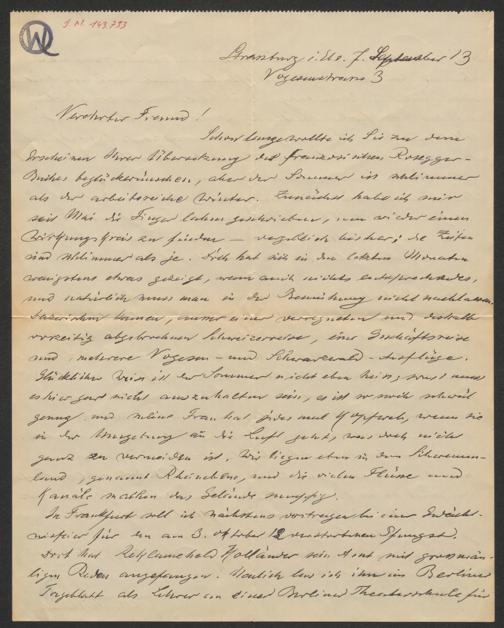 J. N. 149.753
Strassburg i. Els. 7. September 13
Vogesenstrasse 3
Verehrter Freund!
Schon lange wollte ich Sie zu dem
Erscheinen Ihrer Übersetzung des französischen Rosegger-
Buches beglückwünschen, aber der Sommer ist schlimmer
als der arbeitsreiche Winter. Zunächst habe ich mir
seit Mai die Finger lahm geschrieben, um wieder einen
Wirkungskreis zu finden — vergeblich bisher; die Zeiten
sind schlimmer als je. Doch hat sich in den letzten Monaten
wenigstens etwas gezeigt, wenn auch nichts entsprechendes,
und natürlich muss man in der Bemühung nicht nachlassen.
Dazwischen kamen, ausser einer verregneten und deshalb
vorzeitig abgebrochenen Schweizerreise, eine Geschäftsreise
und mehrere Vogesen- und Schwarzwald-Ausflüge.
Glücklicher Weise ist der Sommer nicht eben heiss, sonst
es hier gar nicht auszuhalten sein, es ist so mich schwül
genug und meine Frau hat jedes mal Kopfweh, wenn sie
in der Umgebung an die Luft geht, was doch nicht
ganz zu vermeiden ist. Wir liegen eben in dem Schwemm-
land, genannt Rheinebene, und die vielen Flüsse und
Kanäle machen das Gelände sumpfig.
In Frankfurt soll ich nächstens vortragen bei einer Gedächt-
nisfeier für den am 3. Oktober 12 verstorbenen
Dort hat Holländer sein Amt mit grossmäu-
ligen Reden angefangen. Neulich las ich ihn im Berliner
Tageblatt als Lehrer an einer Berliner Theaterschule für